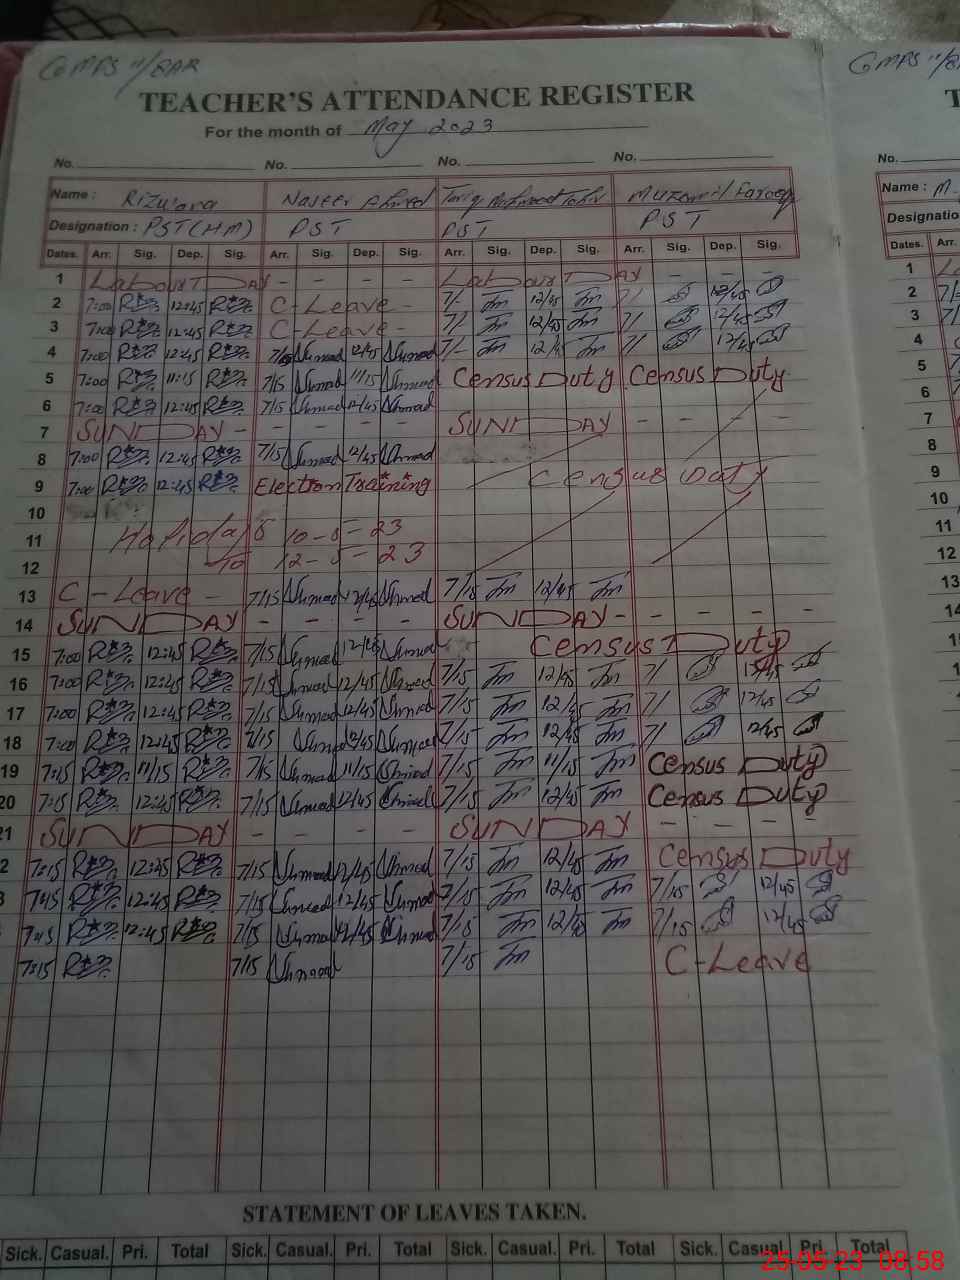 GMPS 11/8AR
GMPS 11/8
TEACHER'S ATTENDANCE REGISTER
T
For the month of May 2023
No. No. No. No.
No.
Name : Rizwana Naseer Ahmed Tariq Mehmood Tahir Muzamil Farooq
Name : M
Designation : PST(HM) PST PST PST
Designatio
Dates. Arr. Sig. Dep. Sig. Arr. Sig. Dep. Sig. Arr. Sig. Dep. Sig. Arr. Sig. Dep. Sig.
Dates. Arr.
1 Labour DAY - - - - Labour DAY - - -
2 7:00 12:45 C-Leave - 7/- 12/45 7/ 12/45
3 7:00 12:45 C-Leave - 7/- 12/45 7/ 12/45
4 7:00 12:45 7/15 Ahmad 12/45 Ahmad 7/- 12/45 7/ 12/45
5 7:00 11:15 7/15 Ahmad 11/15 Ahmad Census Duty Census Duty
6 7:00 12:45 7/15 Ahmad 12/45 Ahmad
7 SUNDAY - - - - - SUNDAY - - - -
8 7:00 12:45 7/15 Ahmad 12/45 Ahmad
9 7:00 12:45 Election Training Census Duty
10
11 Holidays 10-5-23
12 To 12-5-23
13 C-Leave - 7/15 Ahmad 12/45 Ahmad 7/15 Tm 12/45 Tm
14 SUNDAY - - - - SUNDAY - - - - -
15 7:00 12:45 7/15 Ahmad 12/45 Ahmad Census Duty
16 7:00 12:45 7/15 Ahmad 12/45 Ahmad 7/15 Tm 12/45 Tm 7/ 12/45
17 7:00 12:45 7/15 Ahmad 12/45 Ahmad 7/15 Tm 12/45 Tm 7/ 12/45
18 7:00 12:45 7/15 Ahmad 12/45 Ahmad 7/15 Tm 12/45 Tm 7/ 12/45
19 7:15 11/15 7/15 Ahmad 11/15 Ahmad 7/15 Tm 11/15 Tm Census Duty
20 7:15 12:45 7/15 Ahmad 12/45 Ahmad 7/15 Tm 12/45 Tm Census Duty
21 SUNDAY - - - - SUNDAY - - - -
2 7:15 12:45 7/15 Ahmad 12/45 Ahmad 7/15 Tm 12/45 Tm Census Duty
3 7:15 12:45 7/15 Ahmad 12/45 Ahmad 7/15 Tm 12/45 Tm 7/15 12/45
7:15 12:45 7/15 Ahmad 12/45 Ahmad 7/15 Tm 12/45 Tm 7/15 12/45
7:15 7/15 Ahmad 7/15 Tm C-Leave
1
2
3
4
5
6
7
8
9
10
11
12
13
14
15
16
17
18
19
20
21
STATEMENT OF LEAVES TAKEN.
Sick. Casual. Pri. Total Sick. Casual. Pri. Total Sick. Casual. Pri. Total Sick. Casual. Pri. Total
25-05-23 08:58